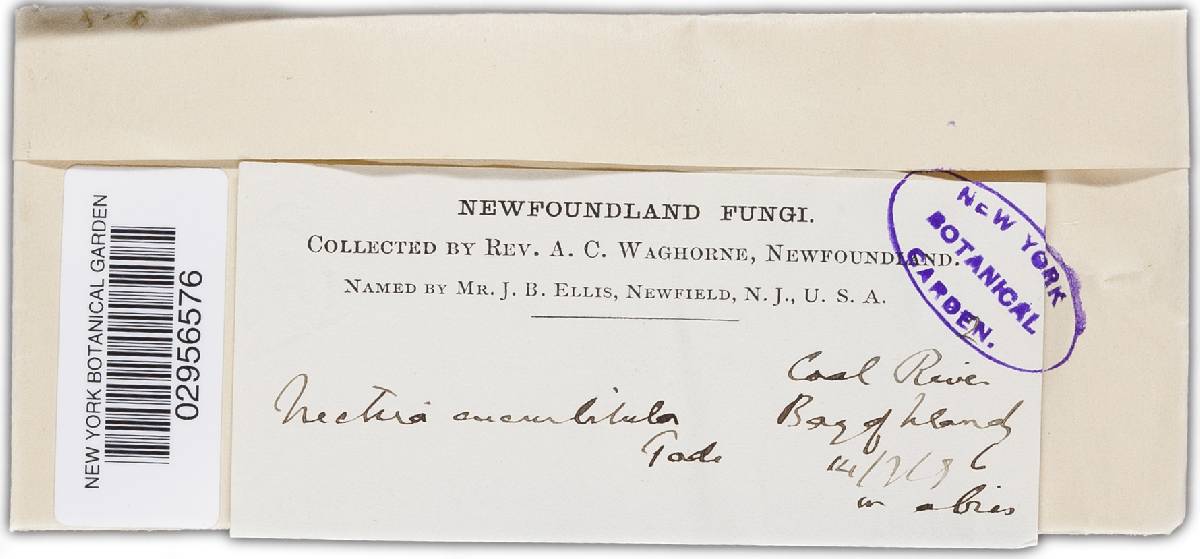 NEW YORK BOTANICAL GARDEN
02956576
NEWFOUNDLAND FUNGI.
COLLECTED BY REV. A. C. WAGHORNE, NEWFOUNDLAND.
NAMED BY MR. J. B. ELLIS, NEWFIELD, N. J., U. S. A.
NEW YORK
BOTANICAL
GARDEN.
Coal River
Nectria cucurbitula
Bay of Islands
Tode
on abies